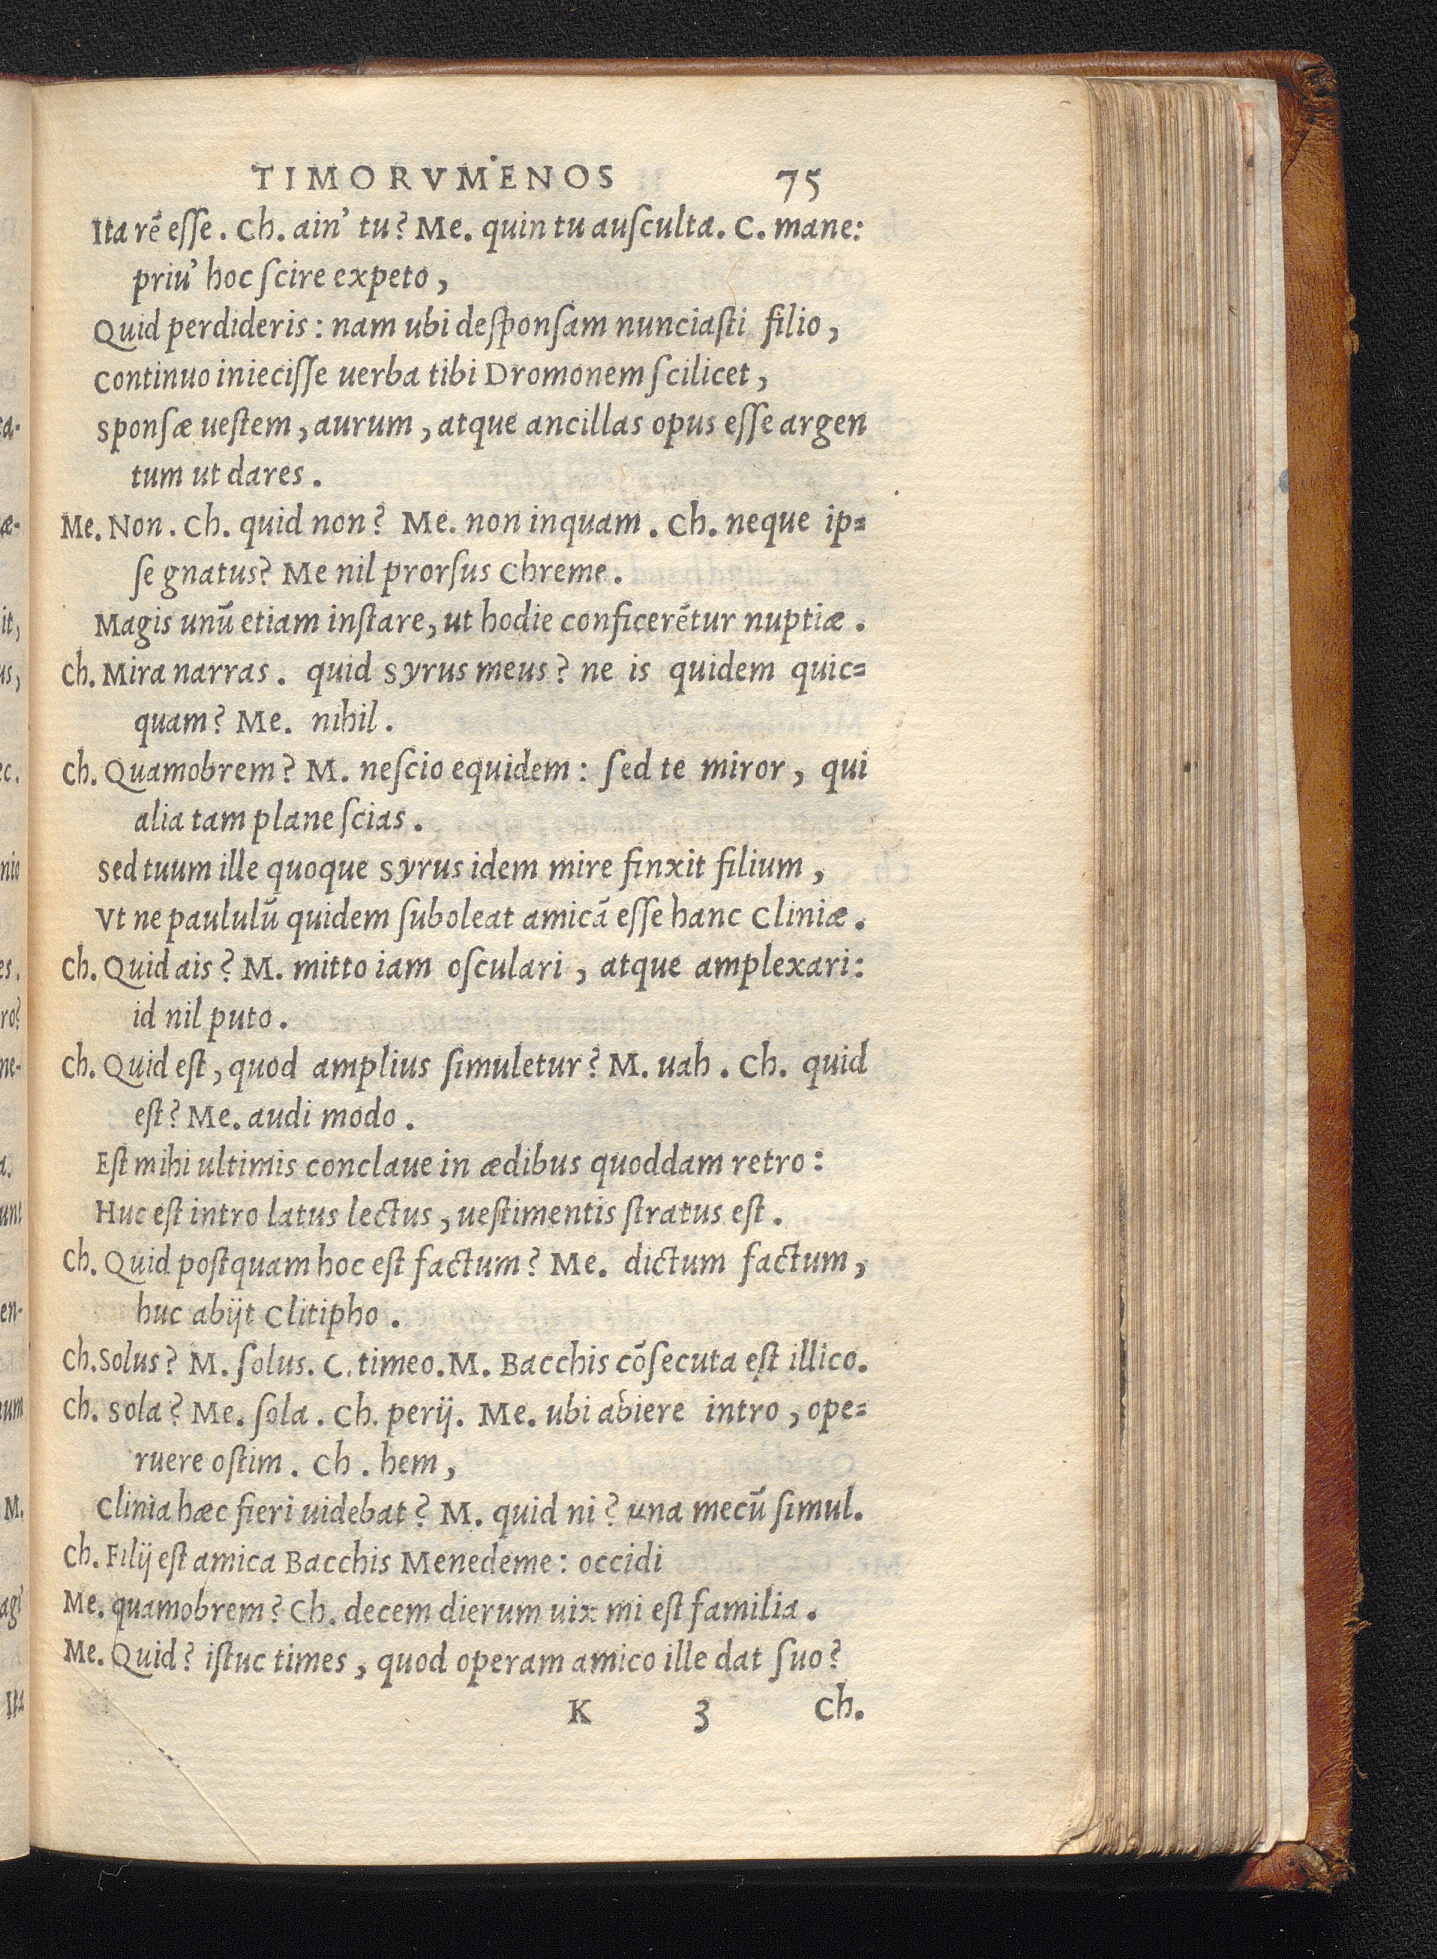 TIMORVMENOS 75
Ita rẽ eſſe. Ch. ain' tu? Me. quin tu auſculta. C. mane:
priu' hoc ſcire expeto,
Quid perdideris: nam ubi deſponſam nunciaſti filio,
Continuo inieciſſe uerba tibi Dromonem ſcilicet,
Sponſæ ueſtem, aurum, atque ancillas opus eſſe argen
tum ut dares.
Me. Non. Ch. quid non? Me. non inquam. Ch. neque ip=
ſe gnatus? Me nil prorſus Chreme.
Magis unũ etiam inſtare, ut hodie conficerẽtur nuptiæ.
Ch. Mira narras. quid Syrus meus? ne is quidem quic=
quam? Me. nihil.
Ch. Quamobrem? M. neſcio equidem: ſed te miror, qui
alia tam plane ſcias.
Sed tuum ille quoque Syrus idem mire finxit filium,
Vt ne paululũ quidem ſuboleat amicã eſſe hanc Cliniæ.
Ch. Quid ais? M. mitto iam oſculari, atque amplexari:
id nil puto.
Ch. Quid eſt, quod amplius ſimuletur? M. uah. Ch. quid
eſt? Me. audi modo.
Eſt mihi ultimis conclaue in ædibus quoddam retro:
Huc eſt intro latus lectus, ueſtimentis ſtratus eſt.
Ch. Quid poſtquam hoc eſt factum? Me. dictum factum,
huc abijt Clitipho.
Ch. Solus? M. ſolus. C. timeo. M. Bacchis cõſecuta eſt illico.
Ch. Sola? Me. ſola. Ch. perij. Me. ubi abiere intro, ope=
ruere oſtim. Ch. hem,
Clinia hæc fieri uidebat? M. quid ni? una mecũ ſimul.
Ch. Filij eſt amica Bacchis Menedeme: occidi
Me. quamobrem? Ch. decem dierum uix mi eſt familia.
Me. Quid? iſtuc times, quod operam amico ille dat ſuo?
K 3 Ch.